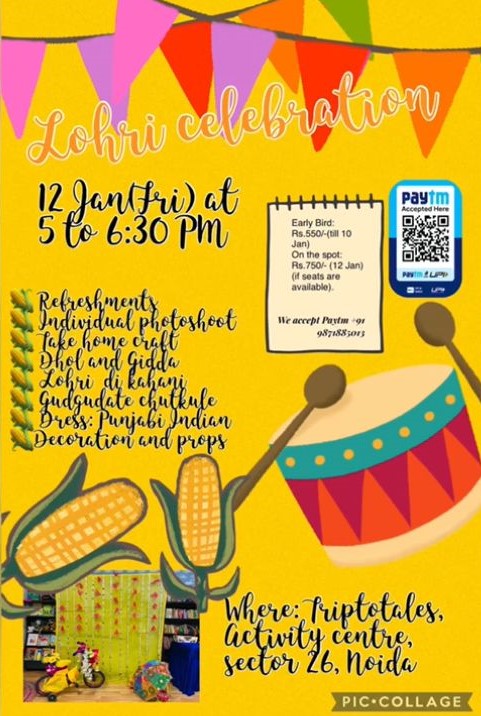 Lohri celebration
12 Jan(Fri) at
5 to 6:30 PM
Early Bird:
Rs.550/-(till 10
Jan)
On the spot:
Rs.750/- (12 Jan)
(if seats are
available).
We accept Paytm +91
9871885013
paytm
Accepted Here
paytm UPI
UPI
Refreshments
Individual photoshoot
Take home craft
Dhol and Gidda
Lohri di kahani
Gudgudate chutkule
Dress: Punjabi Indian
Decoration and props
Where: Triptotales,
Activity centre,
sector 26, Noida
PIC•COLLAGE